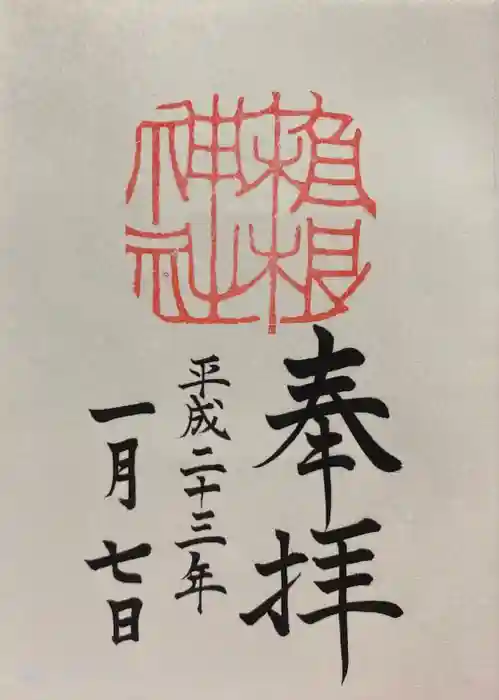 植根
神社
奉拝
平成二十三年
一月七日